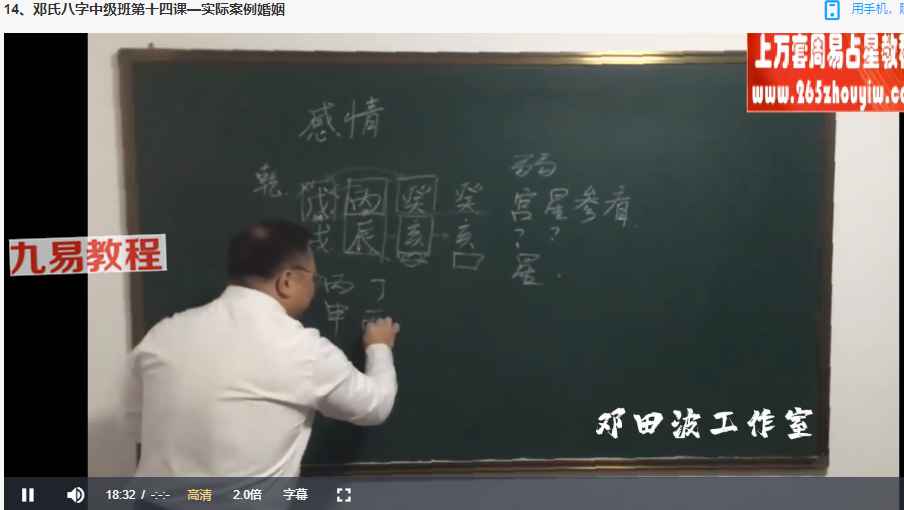 14、邓氏八字中级班第十四课—实际案例婚姻
用手机，
上万套周易占星教
www.265zhouyiw.co
感情
乾 戊 丙 癸 癸
戌 辰 亥 亥
弱
宫星参看
? ?
星.
丙 丁
申
九易教程
邓田波工作室
18:32 / -:-:-
高清
2.0倍
字幕